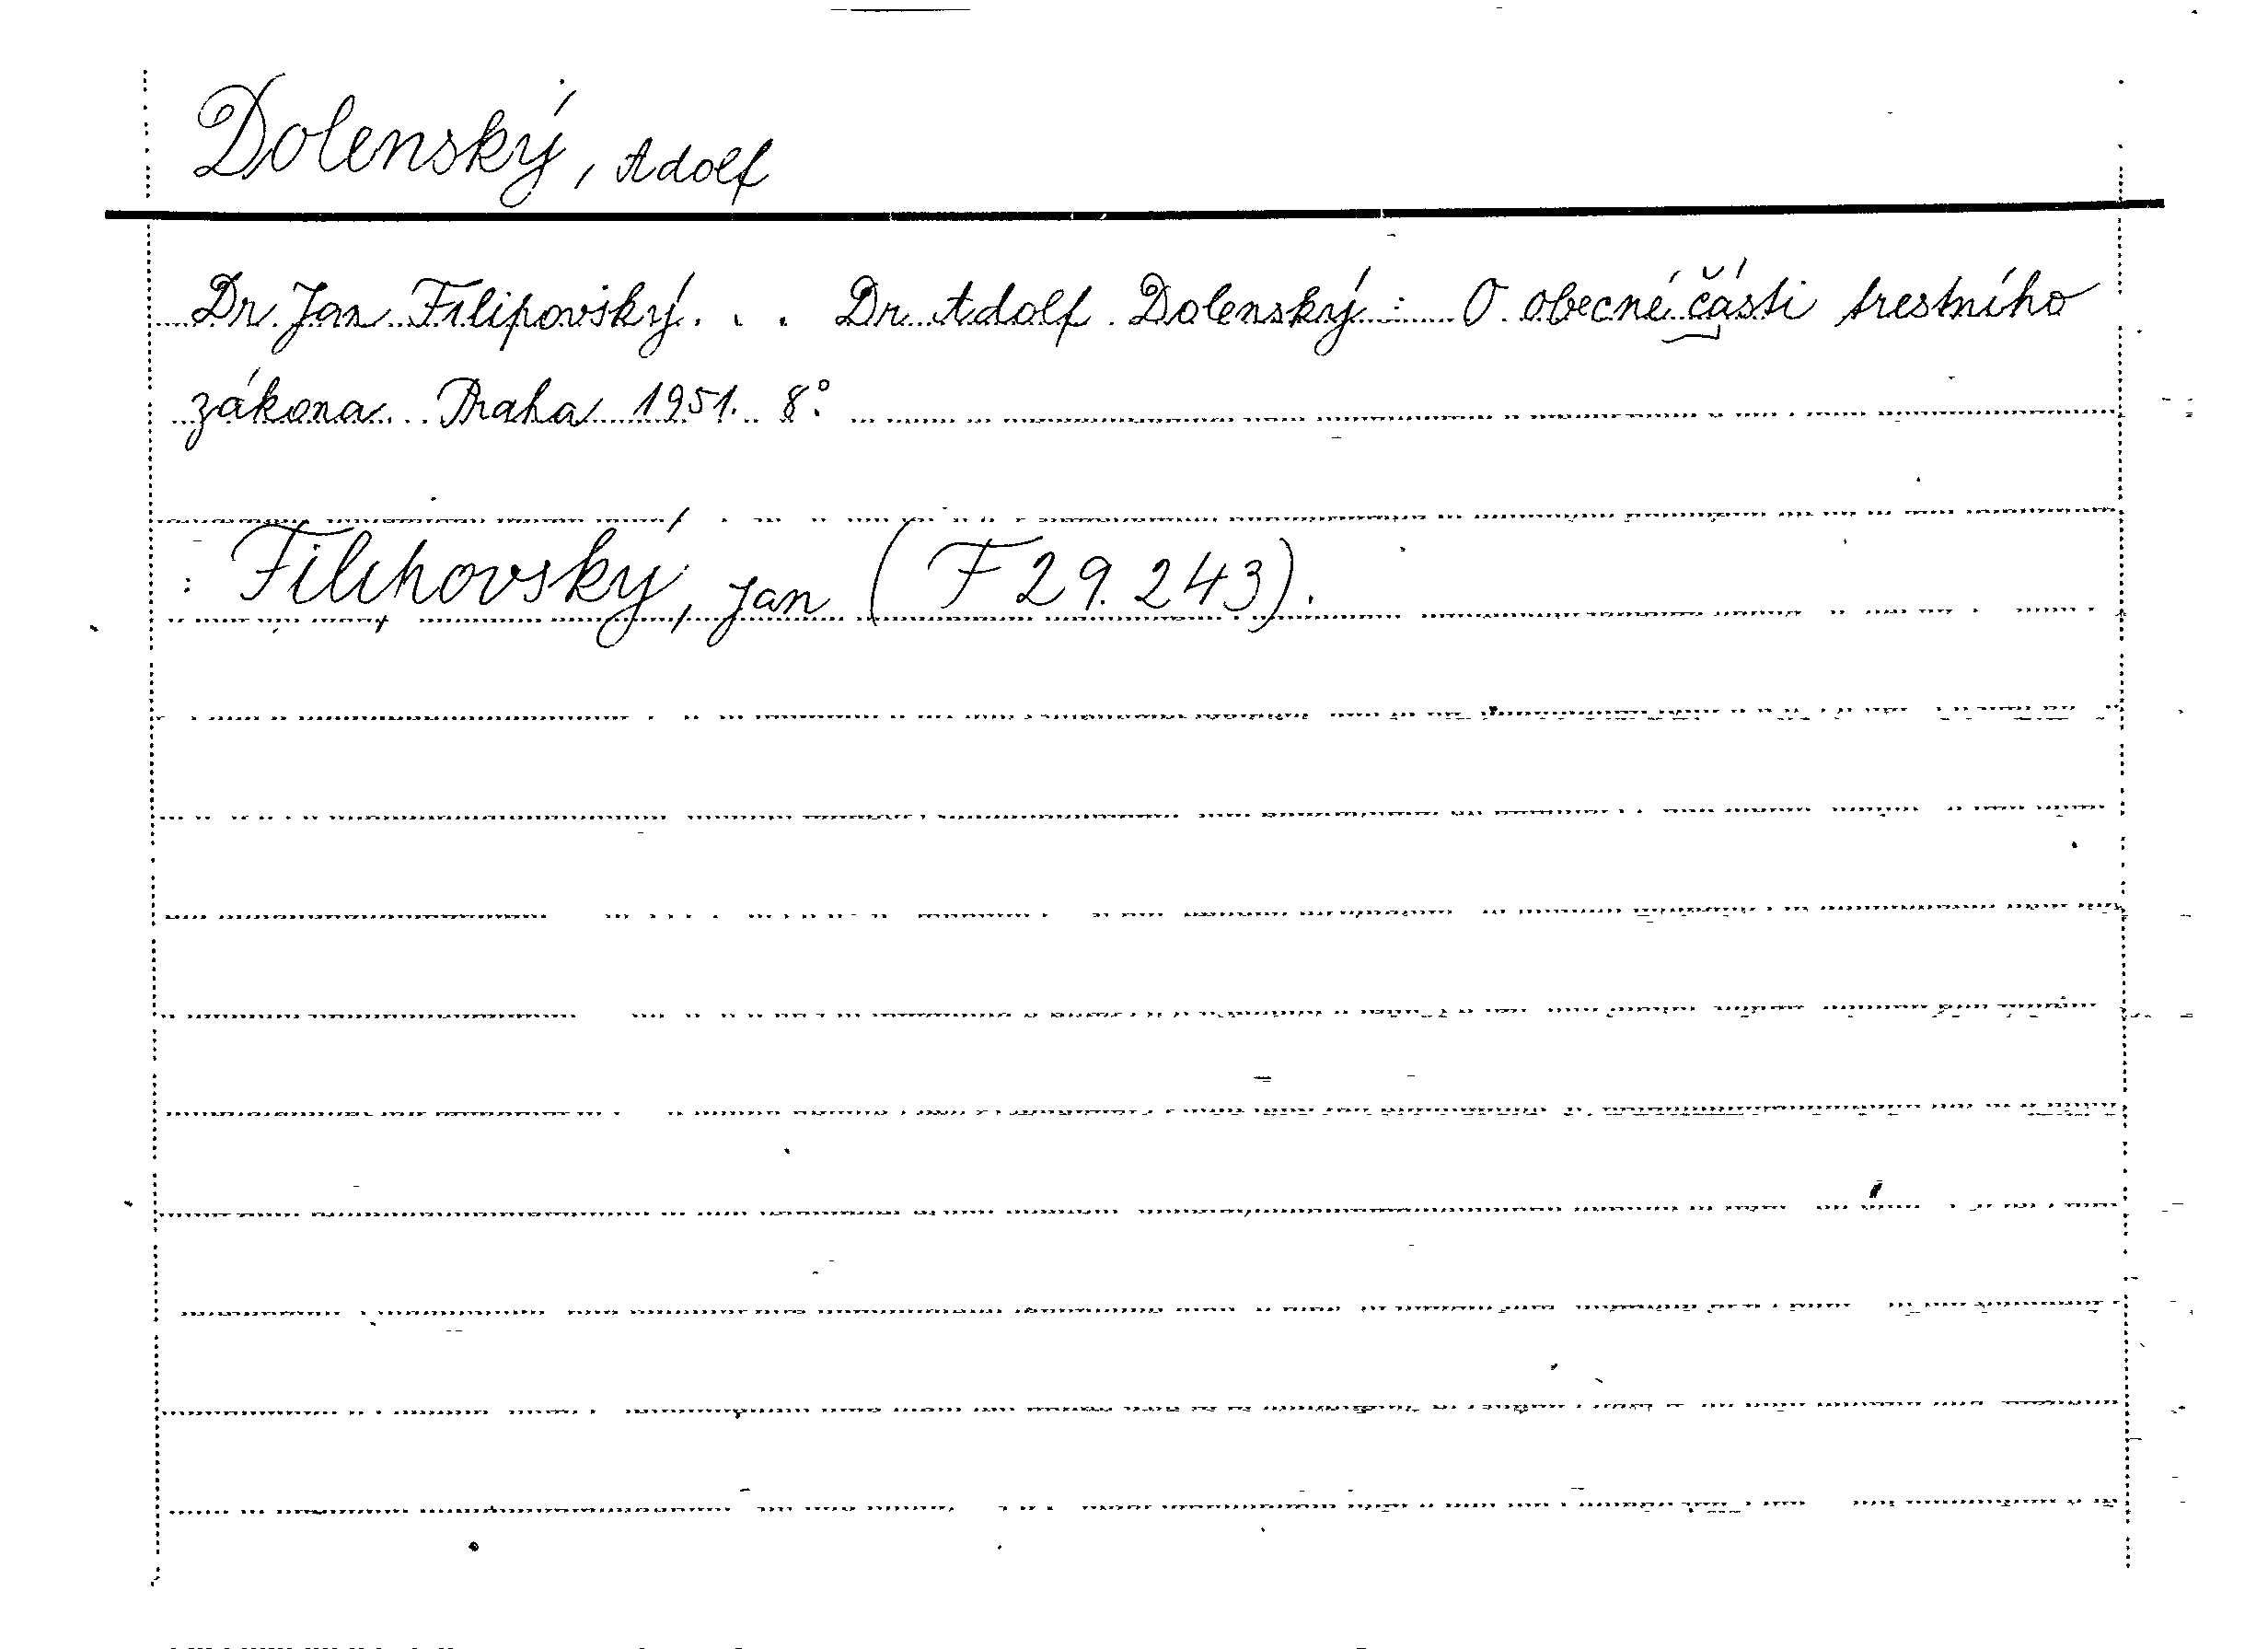 Dolenský, Adolf
Dr. Jan Filipovský . . . Dr. Adolf Dolenský : O obecné části trestního
zákona. Praha 1951. 8°.
: Filipovský, Jan (F 29.243).